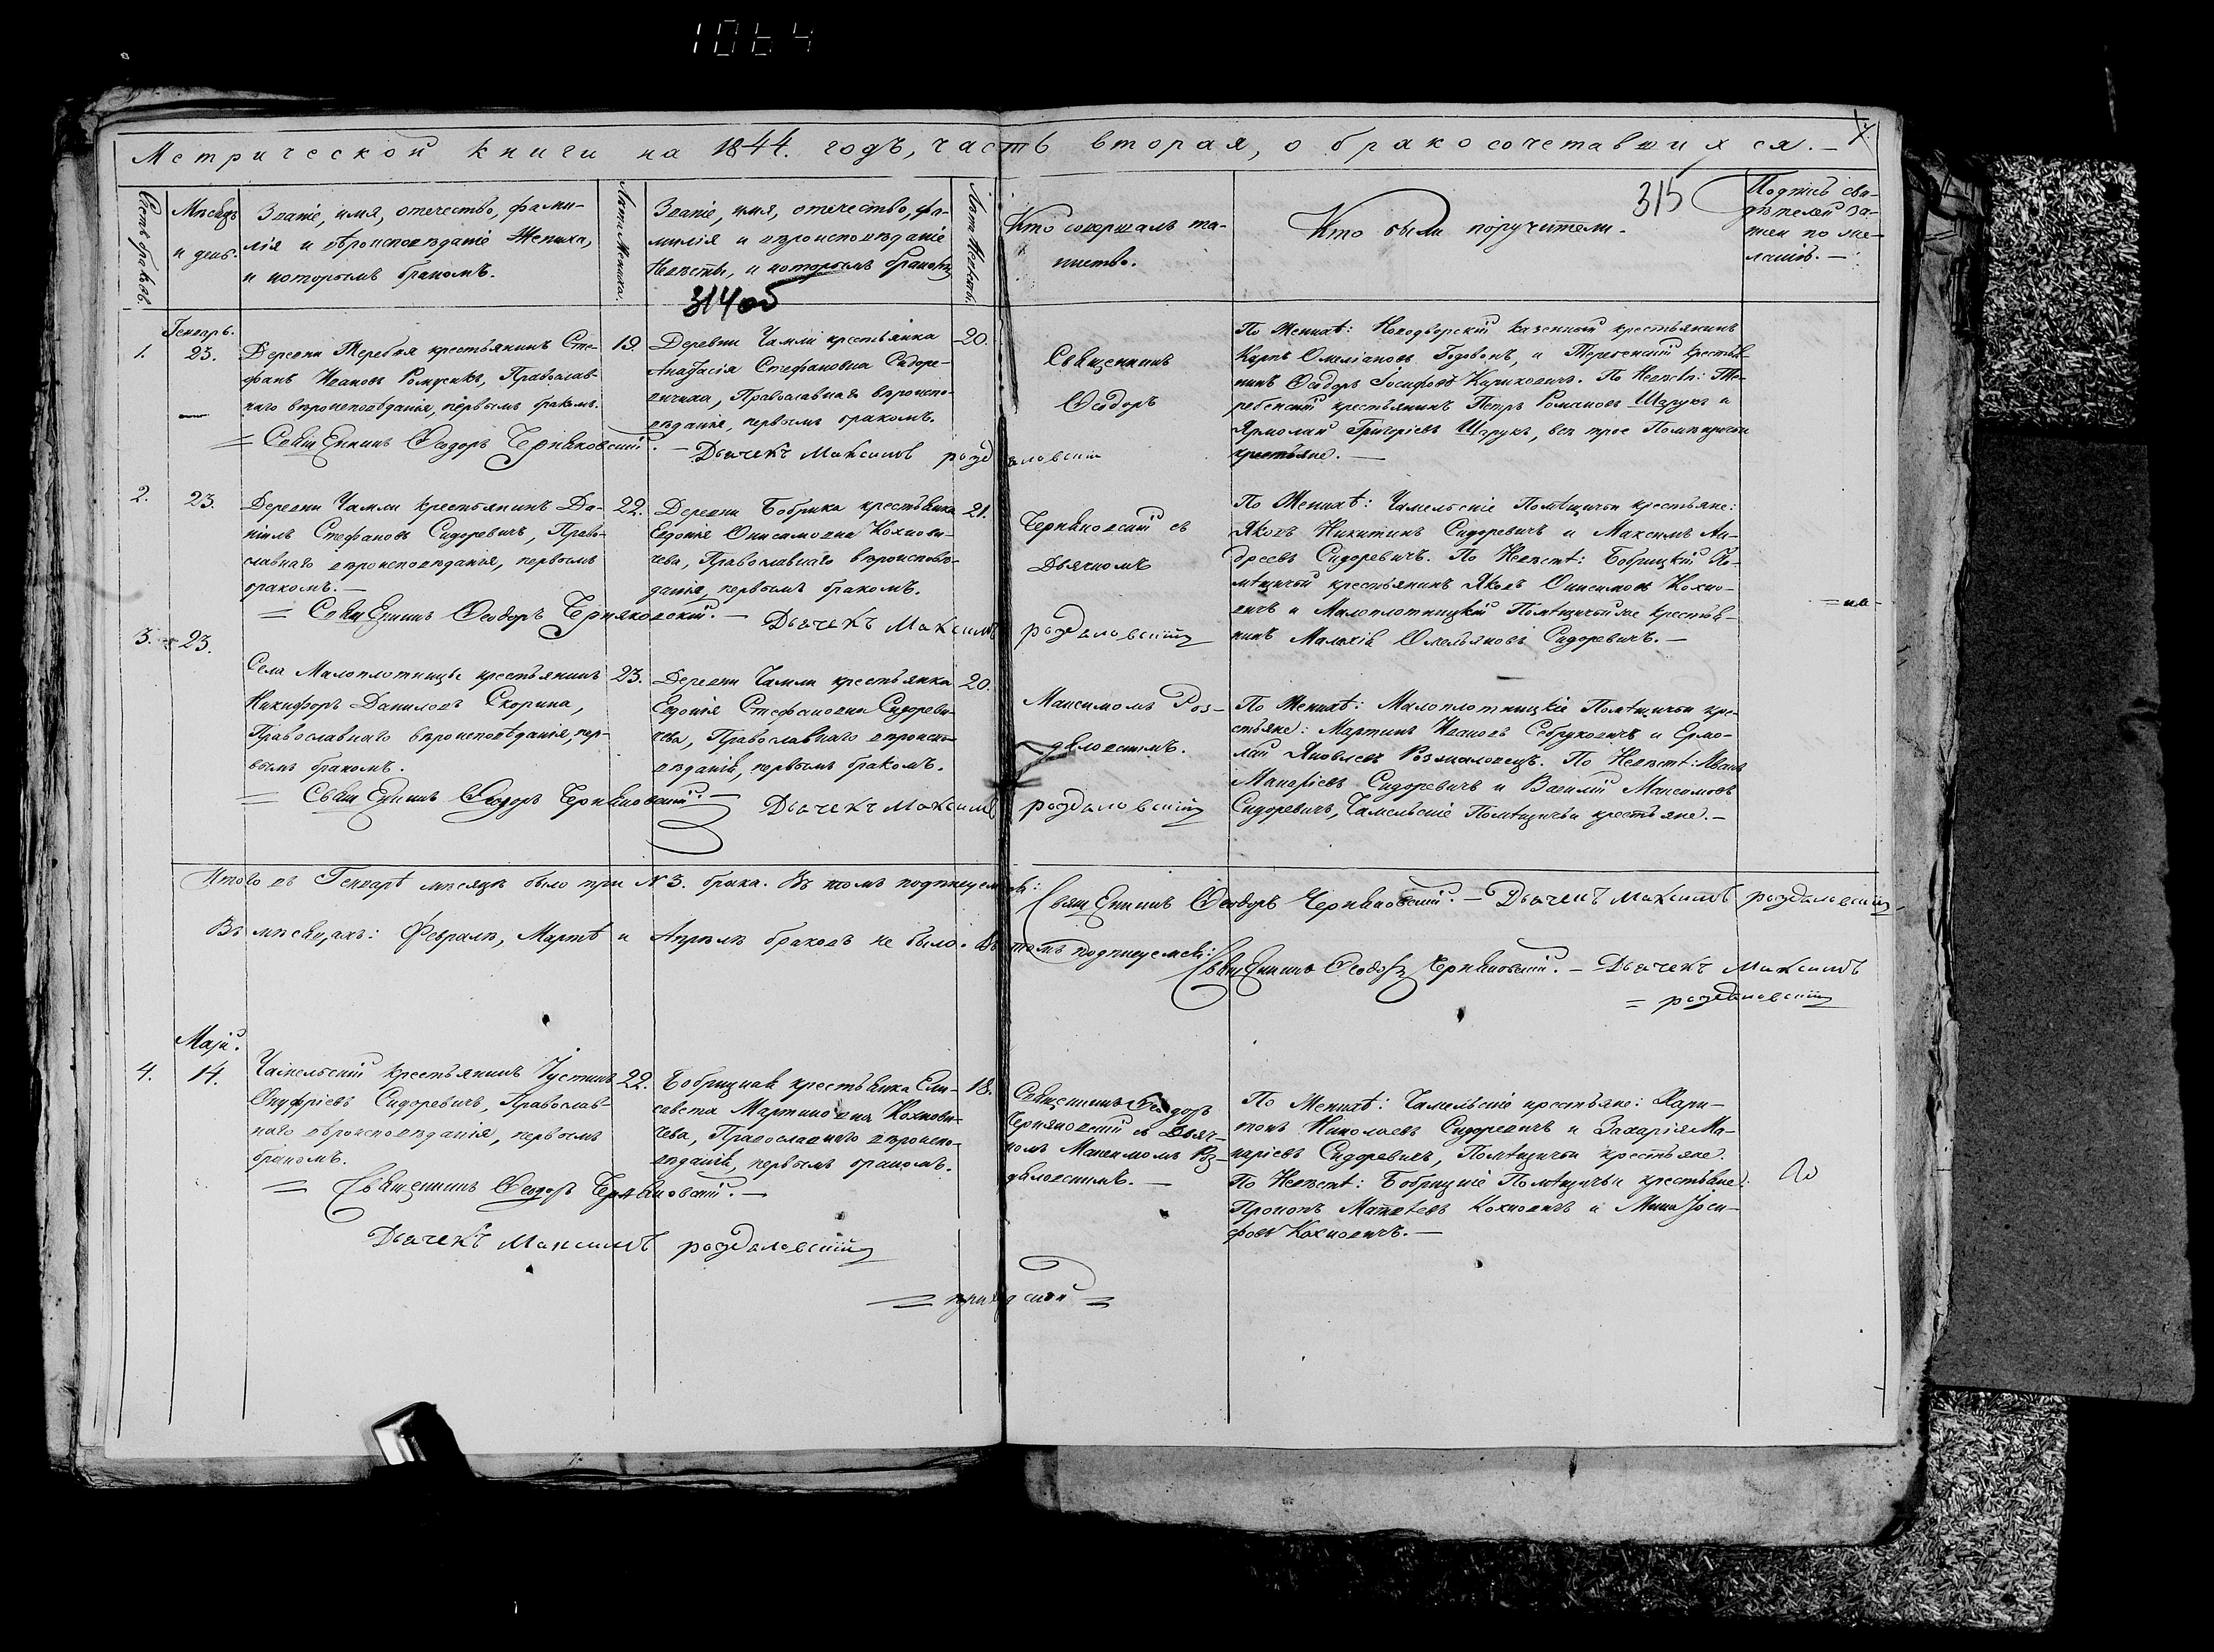 1064
Метрической книги на 1844. годъ, часть вторая, о бракосочетавшихся. —
Счетъ браковъ.
Мѣсяцъ
и день.
Званіе, имя, отечество, фами-
лія и вѣроисповѣданіе Жениха,
и которымъ бракомъ.
Лѣта Жениха.
Званіе, имя, отечество, фа-
милія и вѣроисповѣданіе
Невѣсты, и которымъ бракомъ
314 об
Лѣта Невѣсты.
Кто совершалъ та-
инство.
Кто были поручители.
315
Подпись сви-
дѣтелей за-
писи по же-
ланію. —
Генварь.
1.
23.
Деревни Теребня крестьянинъ Сте-
фанъ Ивановъ Православ-
наго вѣроисповѣданія, первымъ бракомъ.
19.
Деревни Чамли крестьянка
Анастасія Стефановна Сидоре-
вичева, Православнаго вѣроиспо-
вѣданія, первымъ бракомъ.
20.
Священникъ
Ѳеодоръ
По Женихѣ: казенный крестьянинъ
Карпъ Омеліановъ и Теребенскій крестья-
нинъ Ѳеодоръ Іосифовъ По Невѣстѣ: Те-
ребенскій крестьянинъ Петръ Романовъ Шарукъ и
Ярмолай Григоріевъ Шарукъ, всѣ трое Помѣщичьи
крестьяне. —
= Священникъ Ѳеодоръ Черняковскій. — Дьячекъ Максимъ роздяловскій
2.
23.
Деревни Чамли крестьянинъ Да-
ніилъ Стефановъ Сидоревичъ, Право-
славнаго вѣроисповѣданія, первымъ
бракомъ. —
22.
Деревни Бобрика крестьянка
Евдокія Онисимовна Кохнови-
чева, Православнаго вѣроисповѣ-
данія, первымъ бракомъ.
21.
Черняковскій съ
Дьячкомъ
По Женихѣ: Чамельскіе Помѣщичьи крестьяне:
Яковъ Никитинъ Сидоревичъ и Максимъ Ан-
дреевъ Сидоревичъ. По Невѣстѣ: Бобрицкій По-
мѣщичій крестьянинъ Яковъ Онисимовъ Кохно-
вичъ и Малоплотницкій Помѣщичій же крестья-
нинъ Малахій Омельяновъ Сидоревичъ. —
= Священникъ Ѳеодоръ Черняковскій. — Дьячекъ Максимъ роздяловскій
3.
23.
Села Малоплотницы крестьянинъ
Никифоръ Даниловъ Скорина,
Православнаго вѣроисповѣданія, пер-
вымъ бракомъ.
23.
Деревни Чамли крестьянка
Евдокія Стефановна Сидореви-
чева, Православнаго вѣроиспо-
вѣданія, первымъ бракомъ.
20.
Максимомъ Роз-
дяловскимъ.
По Женихѣ: Малоплотницкіе Помѣщичьи кре-
стьяне: Мартинъ Ивановъ Себруковичъ и Ермо-
лай Яковлевъ По Невѣстѣ: Иванъ
Макаріевъ Сидоревичъ и Василій Максимовъ
Сидоревичъ, Чамельскіе Помѣщичьи крестьяне. —
= Священникъ Ѳеодоръ Черняковскій. — Дьячекъ Максимъ роздяловскій
Итого въ Генварѣ мѣсяцѣ было три N 3. брака. Въ томъ подписуемся:
Священникъ Ѳеодоръ Черняковскій. — Дьячекъ Максимъ роздяловскій
Въ мѣсяцахъ: Февралѣ, Мартѣ и Апрѣлѣ браковъ не было. Въ томъ подписуемся:
Священникъ Ѳеодоръ Черняковскій. — Дьячекъ Максимъ
= роздяловскій
Маій.
4.
14.
Чамельскій крестьянинъ Іустинъ
Онуфріевъ Сидоревичъ, Православ-
наго вѣроисповѣданія, первымъ
бракомъ.
22.
Бобрицкая крестьянка Ели-
савета Мартиновна Кохнови-
чева, Православнаго вѣроиспо-
вѣданія, первымъ бракомъ.
18.
Священникъ Ѳеодоръ
Черняковскій съ Дьяч-
комъ Максимомъ Роз-
дяловскимъ. —
По Женихѣ: Чамельскіе крестьяне: Хари-
тонъ Николаевъ Сидоревичъ и Захарія Ма-
каріевъ Сидоревичъ, Помѣщичьи крестьяне.
По Невѣстѣ: Бобрицкіе Помѣщичьи крестьяне:
Прокопъ Матвѣевъ Кохновичъ и Іоси-
фовъ Кохновичъ. —
= Священникъ Ѳеодоръ Черняковскій. —
Дьячекъ Максимъ роздяловскій